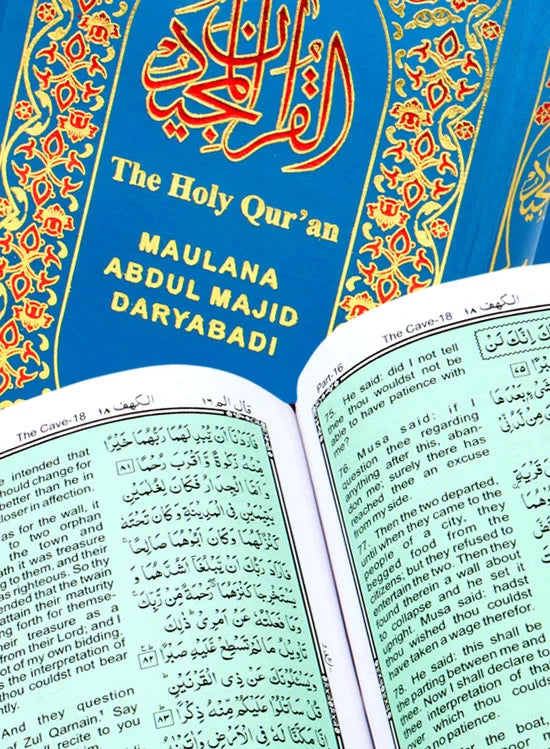 القرآن المجيد
The Holy Qur'an
MAULANA
ABDUL MAJID
DARYABADI
The Cave-18 الكهف ١٨
قال الم ١٦
intended that
should change for
better than he in
closer in affection.
as for the wall, it
to two orphan
the town and
ath it was treasure
ng to them, and their
as righteous. So thy
ended that the twain
attain their maturity
ng forth for themse-
their treasure as a
from their Lord: and I
ot of my own bidding,
is the interpretation of
thou couldst not bear
ntly.
And they question
of Zul Qarnain.' Say
all recite to you
فَاَرَدْنَآ اَنْ يُّبْدِلَهُمَا رَبُّهُمَا خَيْرًا
مِّنْهُ زَكٰوةً وَّ اَقْرَبَ رُحْمًا ٨١
وَ اَمَّا الْجِدَارُ فَكَانَ لِغُلٰمَيْنِ
يَتِيْمَيْنِ فِى الْمَدِيْنَةِ وَكَانَ تَحْتَهٗ
كَنْزٌ لَّهُمَا وَكَانَ اَبُوْهُمَا صَالِحًا
فَاَرَادَ رَبُّكَ اَنْ يَّبْلُغَآ اَشُدَّهُمَا وَ
يَسْتَخْرِجَا كَنْزَهُمَا رَحْمَةً مِّنْ رَّبِّكَ
وَمَا فَعَلْتُهٗ عَنْ اَمْرِىْ ذٰلِكَ
تَاْوِيْلُ مَا لَمْ تَسْطِعْ عَّلَيْهِ صَبْرًا ٨٢
وَيَسْئَلُوْنَكَ عَنْ ذِى الْقَرْنَيْنِ
قُلْ سَاَتْلُوْا عَلَيْكُمْ مِّنْهُ ذِكْرًا ٨٣
اِنَّا مَكَّنَّا لَهٗ فِى الْاَرْضِ وَاٰتَيْنٰهُ
Part-16
The Cave-18 الكهف ١٨
75. He said: did I not tell
thee thou wouldst not be
able to have patience with
me?
76. Musa said: if I
question thee regarding
anything after this, aban-
don me; surely there has
reached thee an excuse
from my side.
77. Then the two departed,
until when they came to the
people of a city, they
begged food from the
citizens; but they refused to
entertain the two. Then they
found therein a wall about
to collapse and he set it
upright. Musa said: hadst
thou wished thou couldst
have taken a wage therefor.
78. He said: this shall be
the parting between me and
thee. Now I shall declare to
thee the interpretation of that
over which thou couldst
patience.
the boat,
اِنَّكَ لَنْ
٧٥